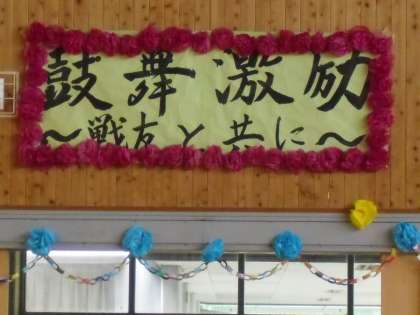 鼓舞激励
～戦友と共に～